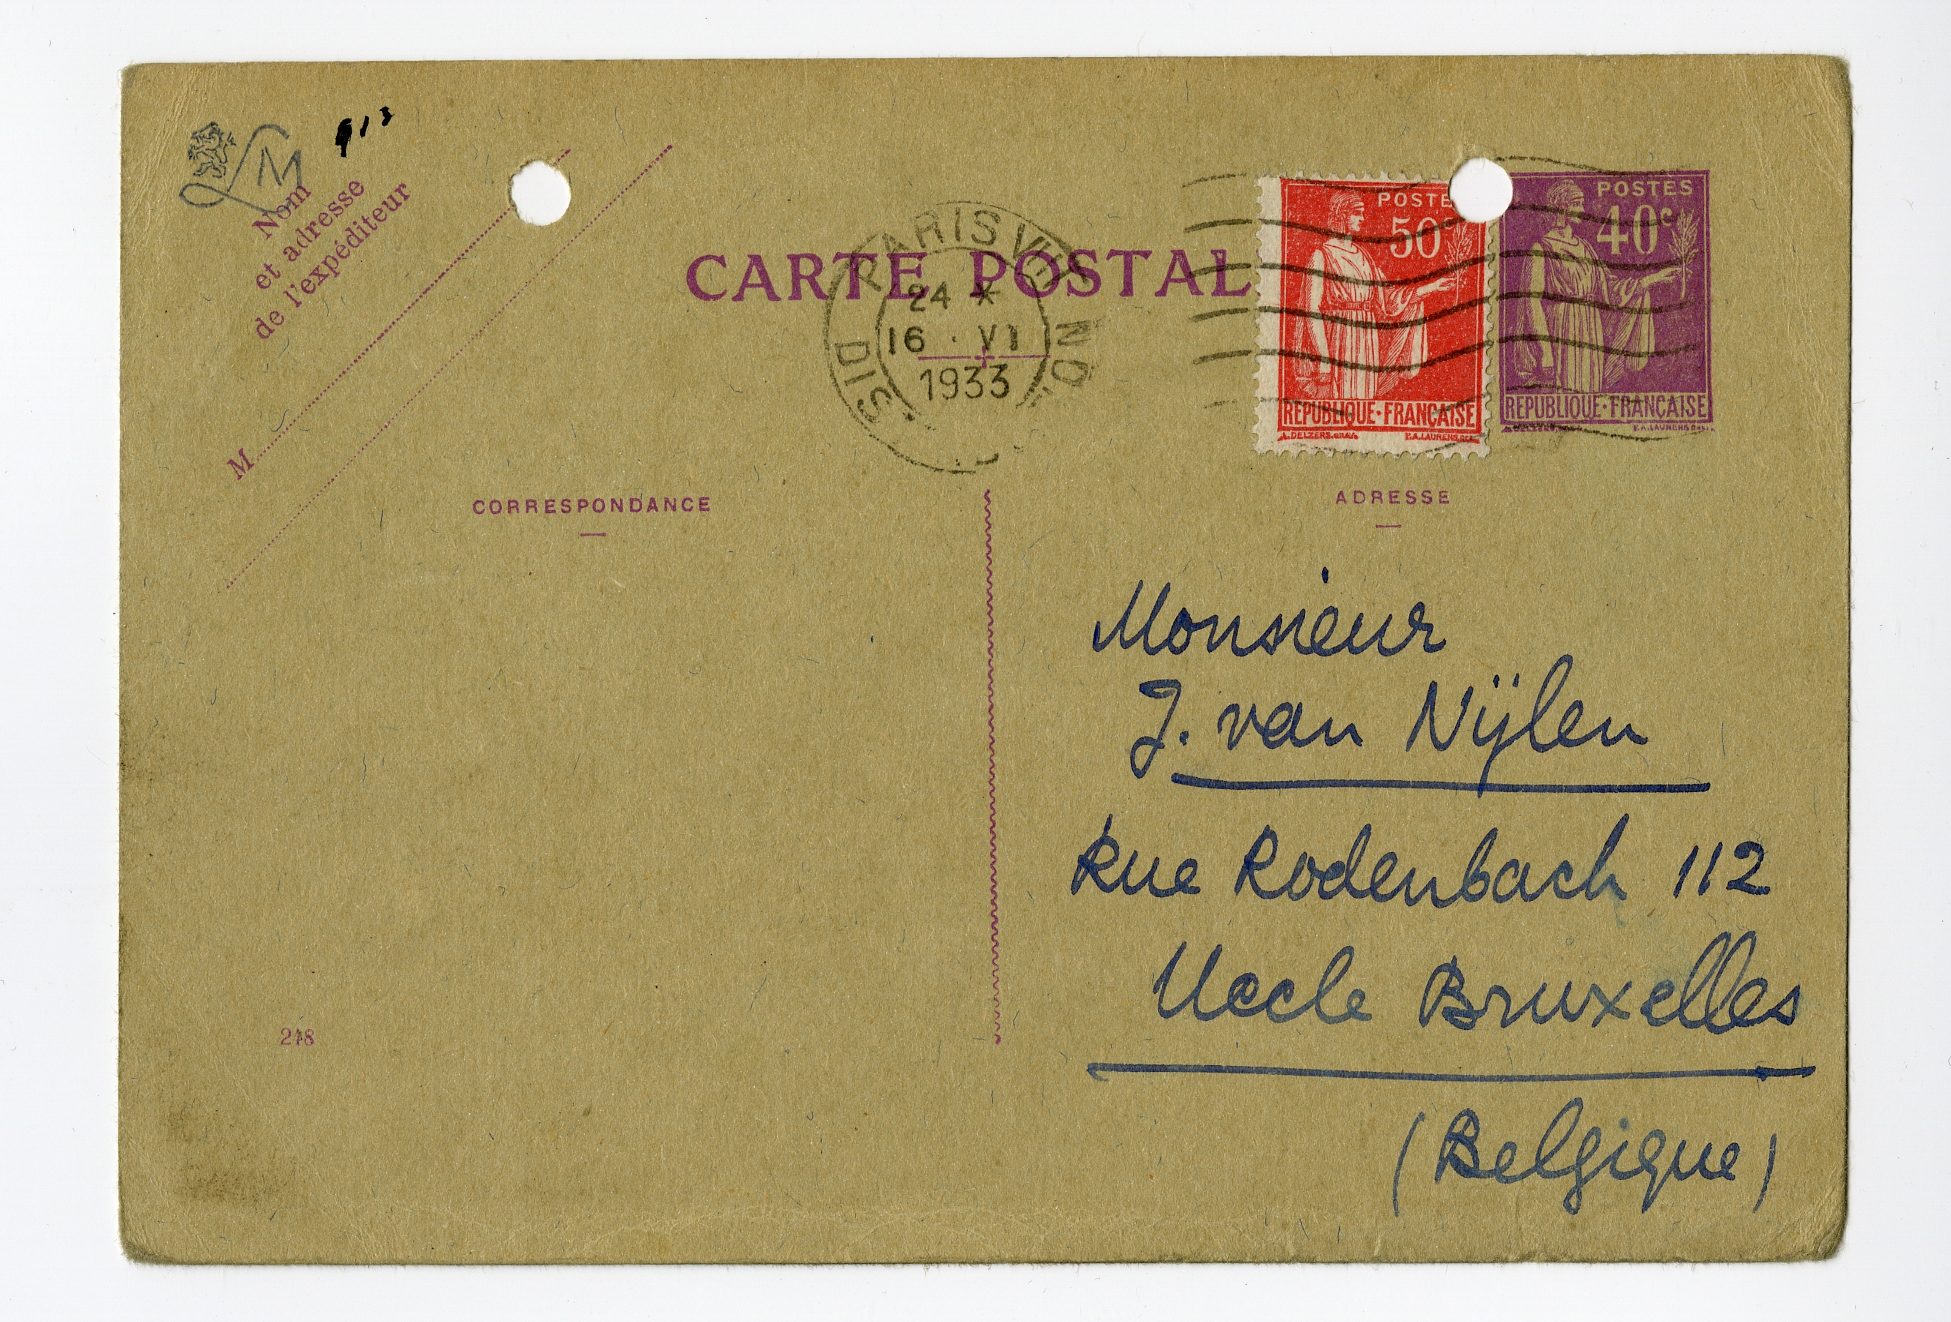 913
Nom
et adresse
de l'expéditeur
M
CARTE POSTAL
PARIS VI
24 *
16 · VI
1933
POSTE
50
REPUBLIQUE · FRANÇAISE
A.DELZERS.
P.A.LAURENS
POSTES
40c
REPUBLIQUE · FRANÇAISE
P.A.LAURENS
CORRESPONDANCE
ADRESSE
Monsieur
J. van Nÿlen
Rue Rodenbach 112
Uccle Bruxelles
(Belgique)
248